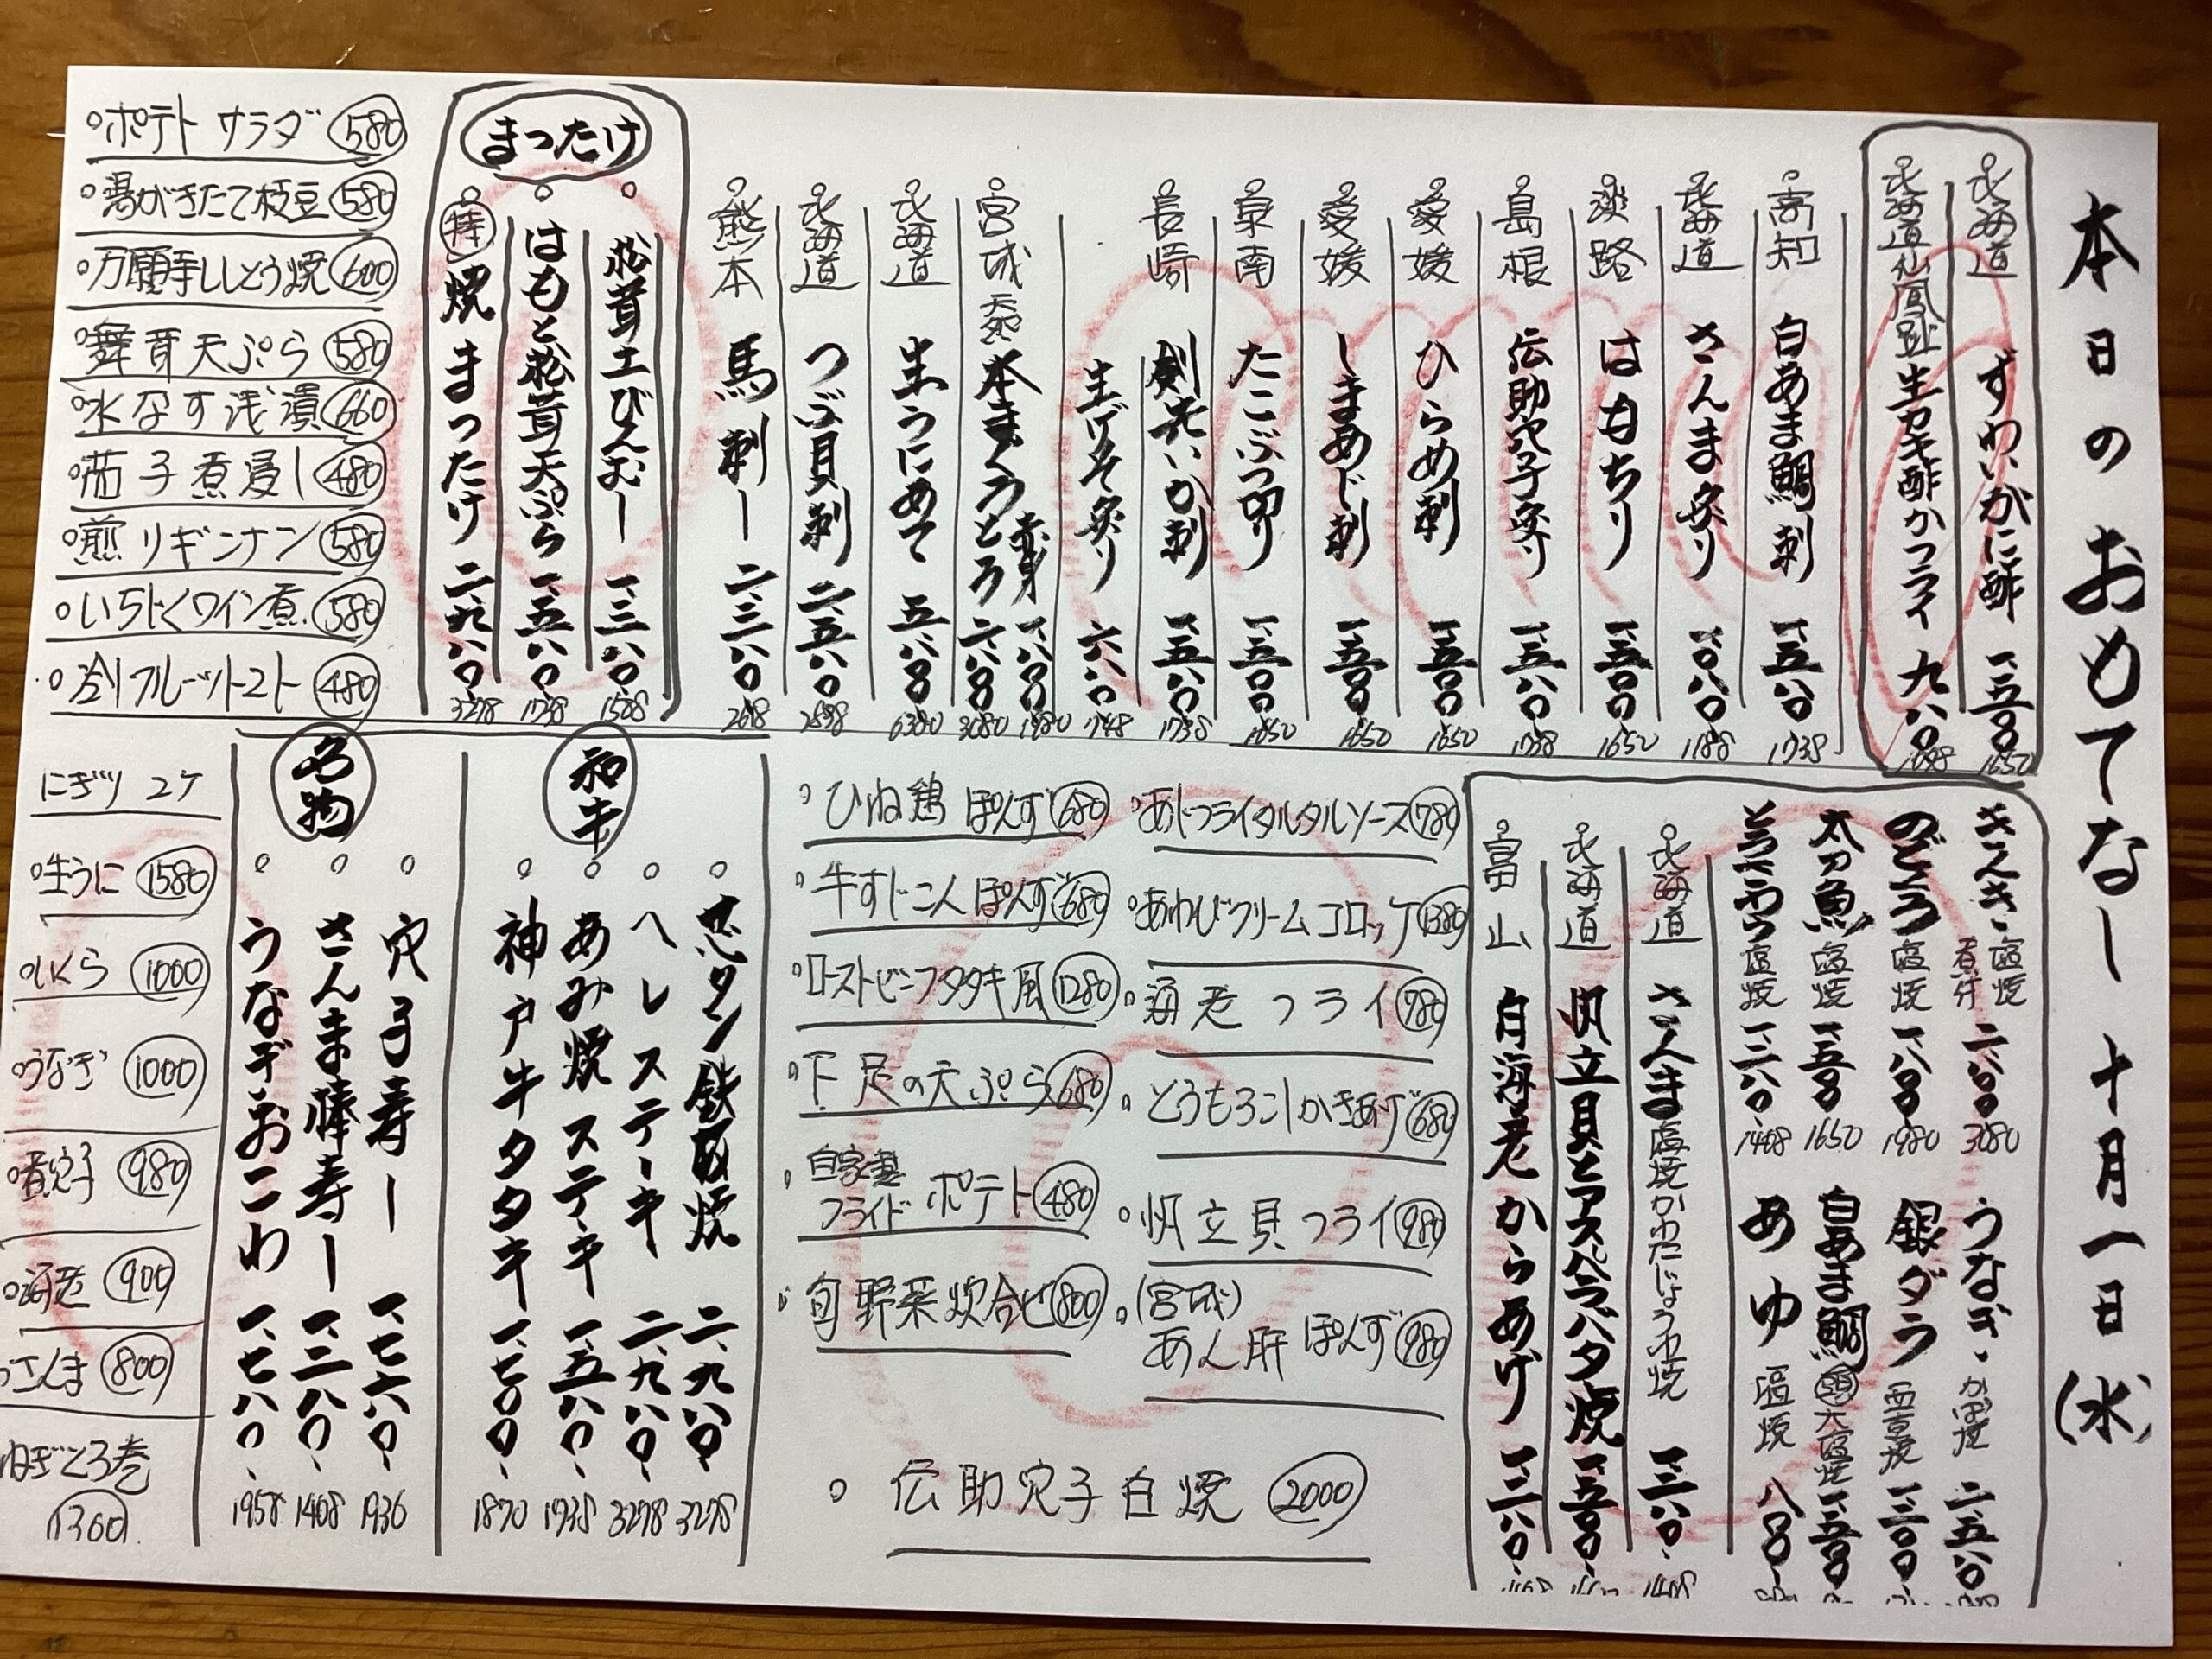 本日のおもてなし 十月一日(水)
北海道 ずわいがに酢 一、五〇〇 1650
北海道仙鳳趾 生カキ酢かフライ 九八〇 1078
高知 白あま鯛刺 一、五八〇 1738
北海道 さんま炙り 一、〇八〇 1188
淡路 はもちり 一、五〇〇 1650
島根 伝助穴子炙り 一、五八〇 1738
愛媛 ひらめ刺 一、五〇〇 1650
愛媛 しまあじ刺 一、五〇〇 1650
泉南 たこぶつ切り 一、五〇〇 1650
長崎 剣先いか刺 一、五八〇 1738
生げそ炙り 六八〇 748
宮城 本まぐろ 赤身 一、八〇〇 1980
とろ 二、八〇〇 3080
北海道 生うにあて 五、八〇〇 6380
北海道 つぶ貝刺 二、五八〇 2838
熊本 馬刺し 二、三八〇 2618
まつたけ
松茸土びんむし 一、三八〇 1518
はもと松茸天ぷら 一、五八〇 1738
特 焼まつたけ 二、九八〇 3278
ポテトサラダ 580
湯がきたて枝豆 580
万願寺ししとう焼 600
舞茸天ぷら 580
水なす浅漬 660
茄子煮浸し 480
煎りギンナン 580
いちじくワイン煮 580
冷しフルーツトマト 480
きんき 塩焼 煮付 二、八〇〇 3080
のどぐろ 塩焼 一、八〇〇 1980
太刀魚 塩焼 一、五〇〇 1650
とろさわら 塩焼 一、二八〇 1408
うなぎ かば焼 二、五八〇
銀ダラ 西京焼 一、三〇〇
白あま鯛 頭 大塩焼 一、五〇〇
あゆ 塩焼 八〇〇
北海道 さんま 塩焼かわたじょうゆ焼 一、二八〇 1408
北海道 帆立貝とアスパラバター焼 一、五〇〇
富山 白海老からあげ 一、二八〇
あじフライタルタルソース 780
あわびクリームコロッケ 1380
海老フライ 980
とうもろこしかきあげ 680
帆立貝フライ 980
(宮城) あん肝ぽんず 980
ひね鶏ぽんず 680
牛すじこんぽんず 680
ローストビーフタタキ風 1280
下足の天ぷら 680
自家製フライドポテト 480
旬野菜炊合せ 800
伝助穴子白焼 2000
和牛
芯タン鉄板焼 二、九八〇 3278
ヘレステーキ 二、九八〇 3278
あみ焼ステーキ 一、五八〇 1738
神戸牛タタキ 一、七〇〇 1870
名物
穴子寿し 一、七六〇 1936
さんま棒寿し 一、二八〇 1408
うなぎおこわ 一、七八〇 1958
にぎり 2ケ
生うに 1580
いくら 1000
うなぎ 1000
煮穴子 980
海老 900
さんま 800
ねぎとろ巻 1300